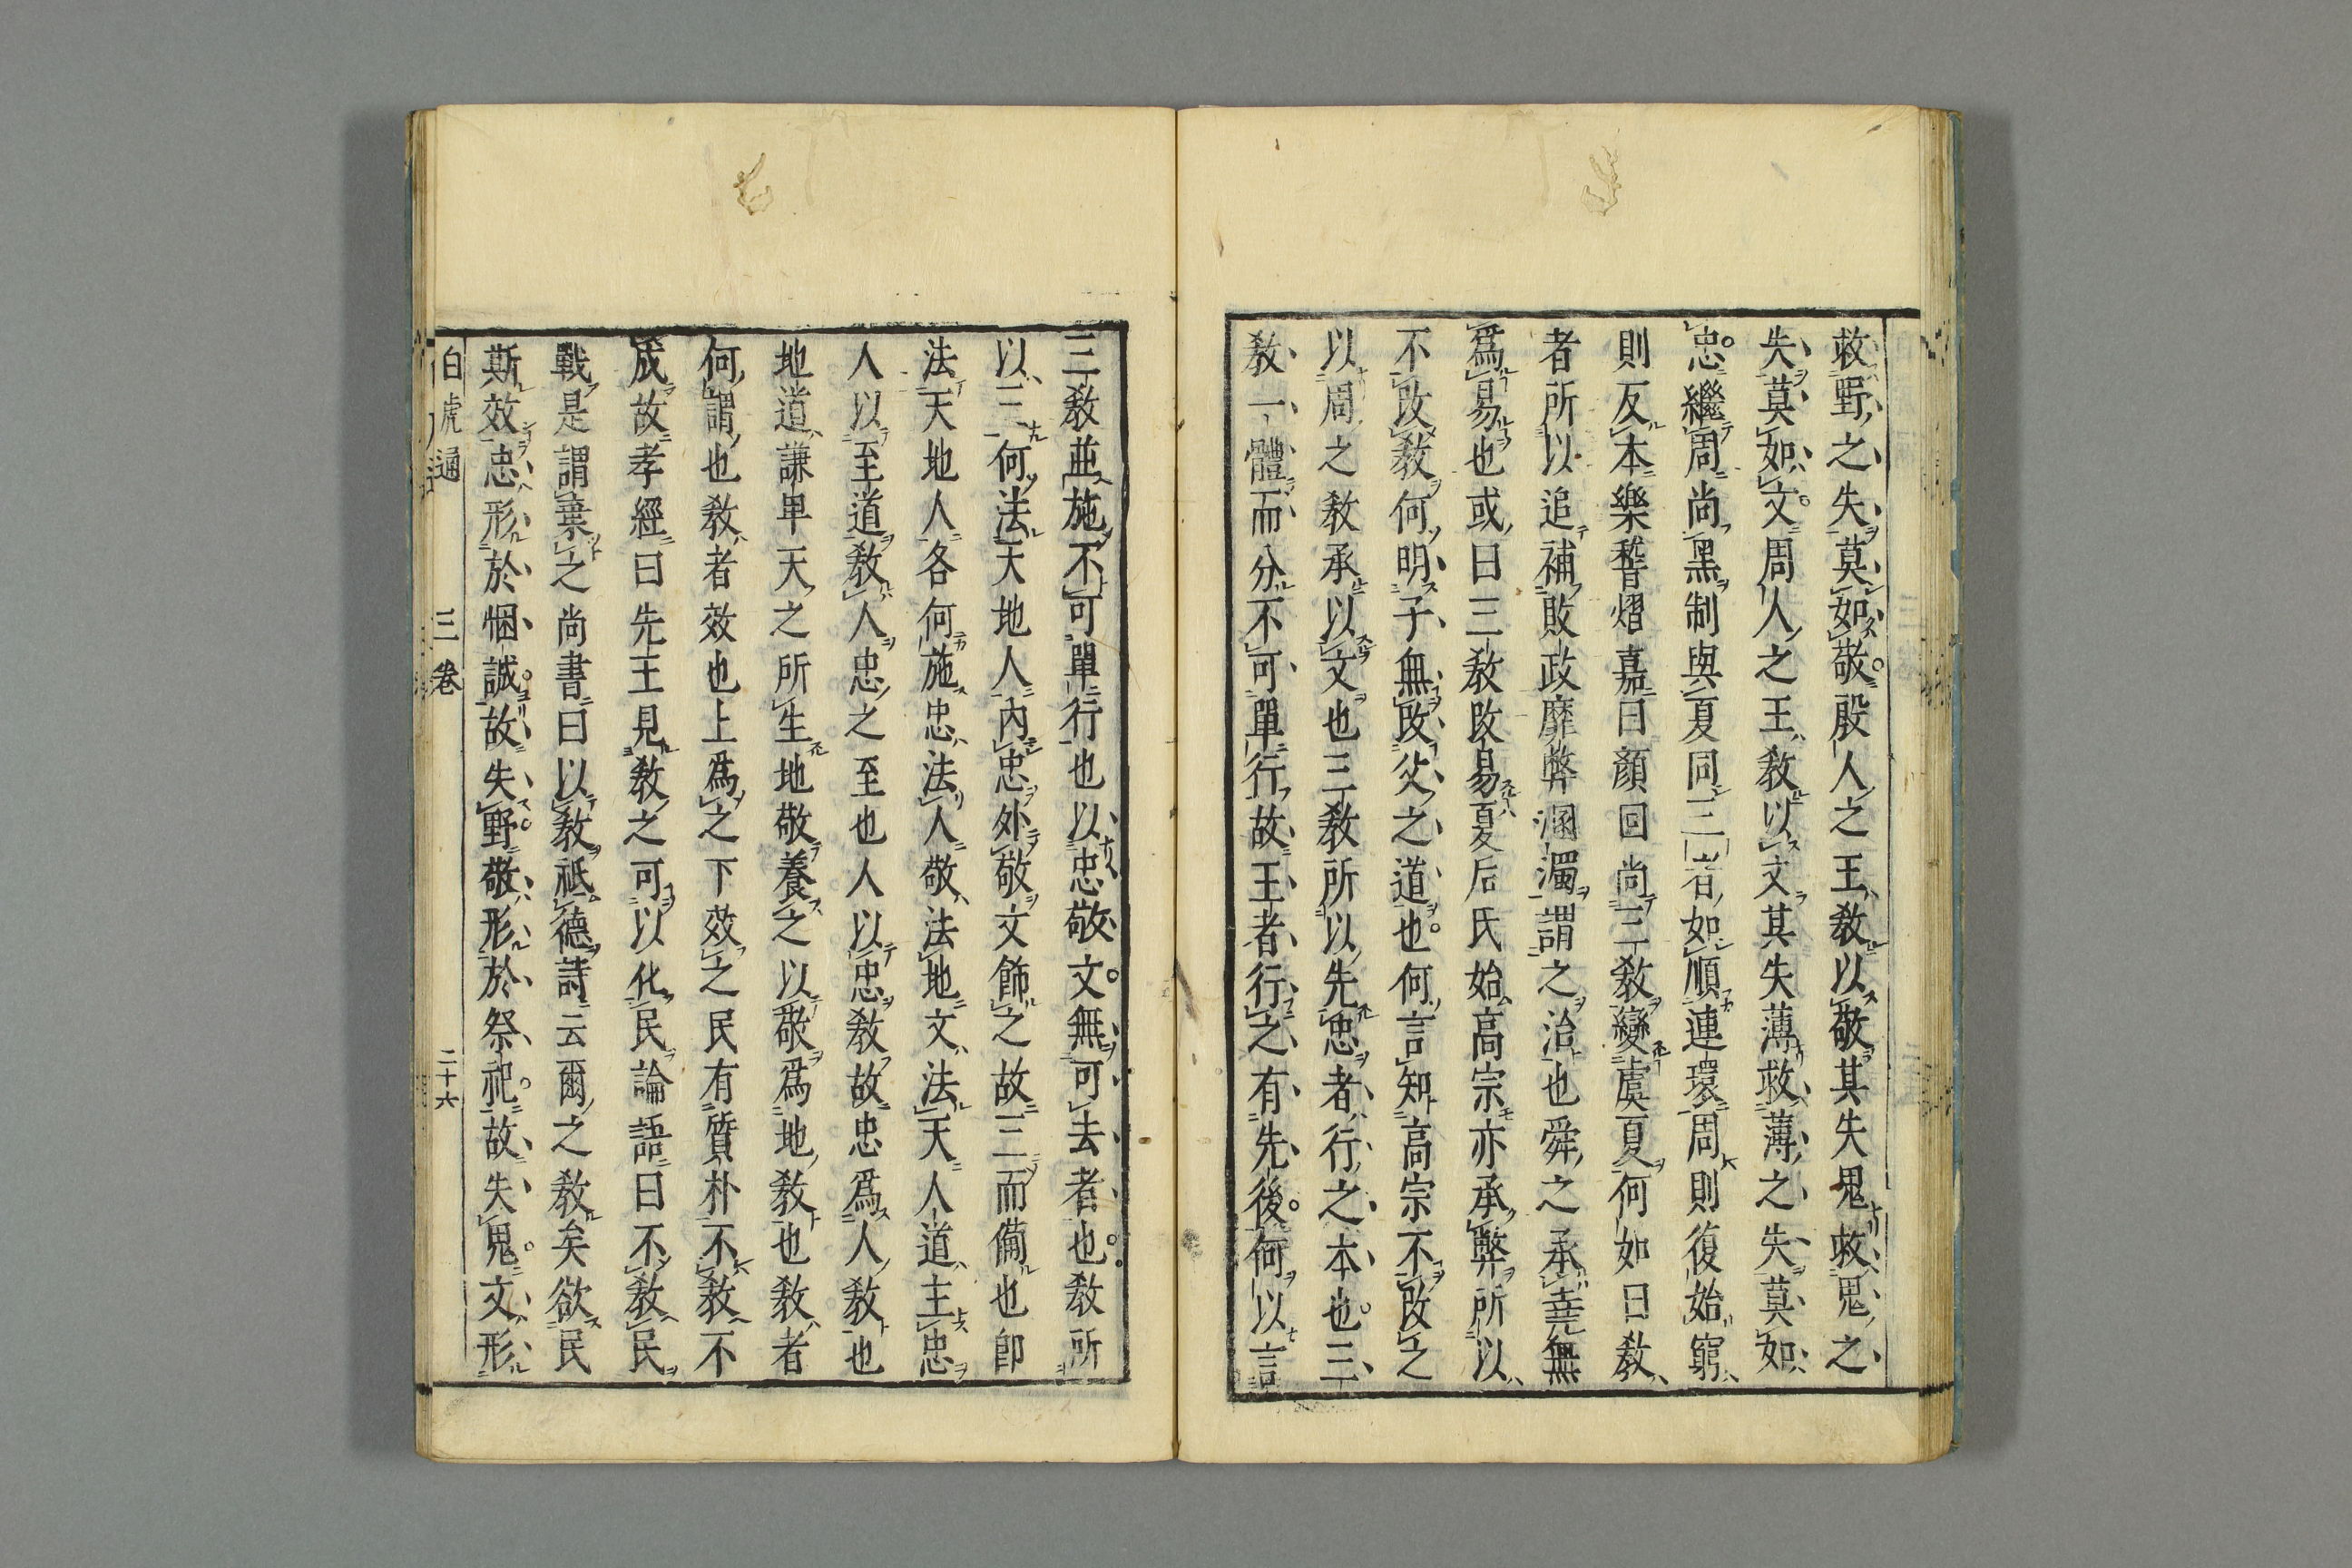 救野之失莫如敬殷人之王敎以敬其失鬼救鬼之
失莫如文周人之王敎以文其失薄救薄之失莫如
忠繼周尚黑制與夏同三者如順連環周則復始窮
則反本樂稽熠嘉曰顏回尚三敎變虞夏何如曰敎
者所以追補敗政靡弊溷濁謂之治也舜之承堯無
爲易也或曰三敎改易夏后氏始高宗亦承弊所以
不改敎何明子無改父之道也何言知高宗不改之
以周之敎承以文也三敎所以先忠者行之本也三
敎一體而分不可單行故王者行之有先後何以言
三敎並施不可單行也以忠敬文無可去者也敎所
以三何法天地人內忠外敬文飾之故三而備也卽
法天地人各何施忠法人敬法地文法天人道主忠
人以至道敎人忠之至也人以忠敎故忠爲人敎也
地道謙卑天之所生地敬養之以敬爲地敎也敎者
何謂也敎者效也上爲之下效之民有質朴不敎不
成故孝經曰先王見敎之可以化民論語曰不敎民
戰是謂棄之尚書曰以敎祗德詩云爾之敎矣欲民
斯效忠形於悃誠故失野敬形於祭祀故失鬼文形
白虎通 三卷 二十六